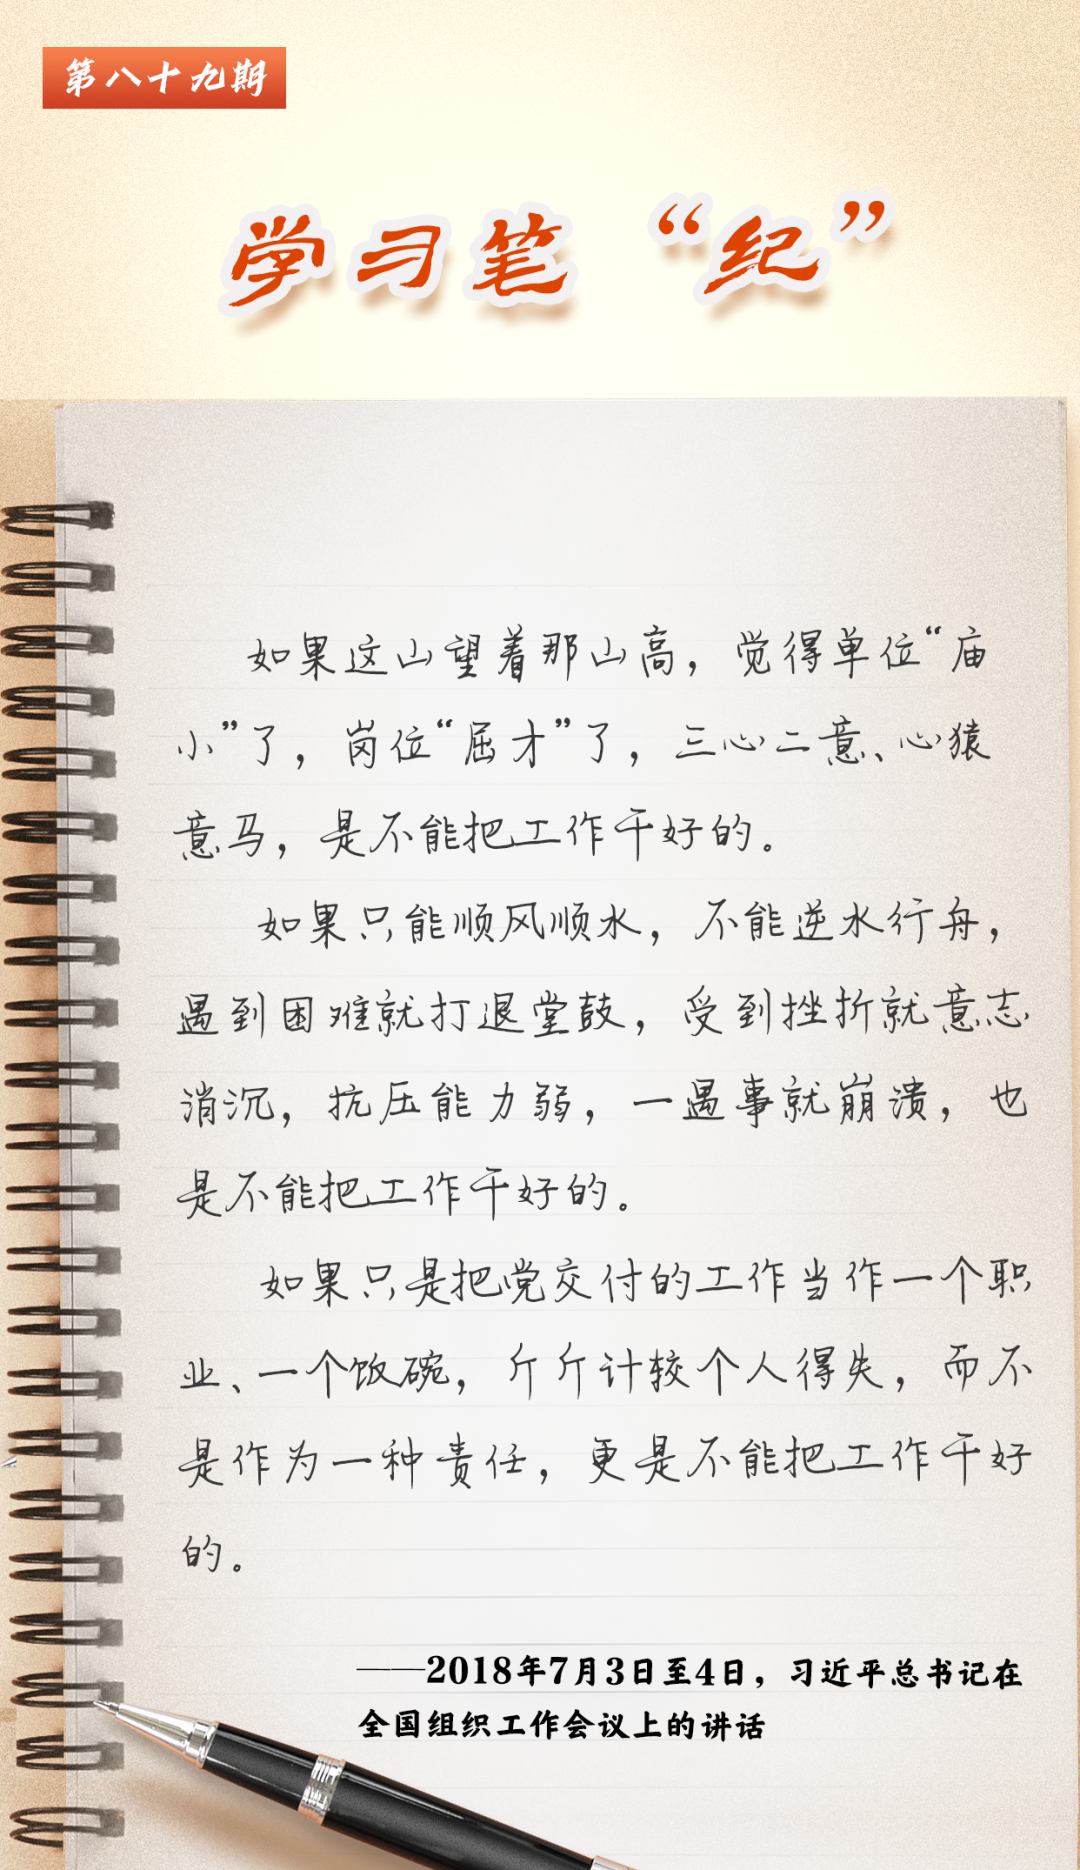 第八十九期
学习笔“纪”
如果这山望着那山高，觉得单位“庙
小”了，岗位“屈才”了，三心二意、心猿
意马，是不能把工作干好的。
如果只能顺风顺水，不能逆水行舟，
遇到困难就打退堂鼓，受到挫折就意志
消沉，抗压能力弱，一遇事就崩溃，也
是不能把工作干好的。
如果只是把党交付的工作当作一个职
业、一个饭碗，斤斤计较个人得失，而不
是作为一种责任，更是不能把工作干好
的。
——2018年7月3日至4日，习近平总书记在
全国组织工作会议上的讲话